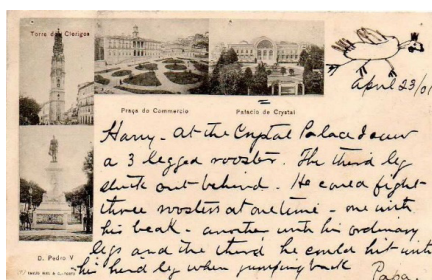 Torre dos Clerigos
Praça do Commercio
Palacio de Crystal
April 23/01
Harry - At the Crystal Palace I saw
a 3 legged rooster. The third leg
stuck out behind. He could fight
three roosters at one time - one with
his beak - another with his ordinary
legs and the third he could hit with
his hind leg when jumping back
Papa.
D. Pedro V